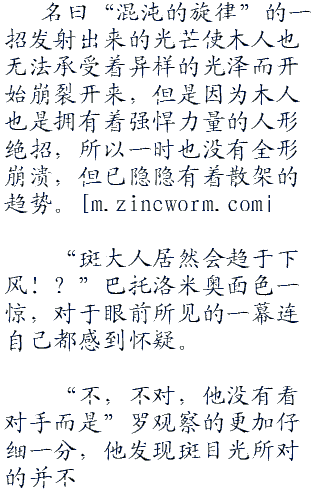 名曰“混沌的旋律”的一
招发射出来的光芒使木人也
无法承受着异样的光泽而开
始崩裂开来，但是因为木人
也是拥有着强悍力量的人形
绝招，所以一时也没有全形
崩溃，但已隐隐有着散架的
趋势。[m.zincworm.com|
“斑大人居然会趋于下
风！？”巴托洛米奥面色一
惊，对于眼前所见的一幕连
自己都感到怀疑。
“不，不对，他没有看
对手而是”罗观察的更加仔
细一分，他发现斑目光所对
的并不